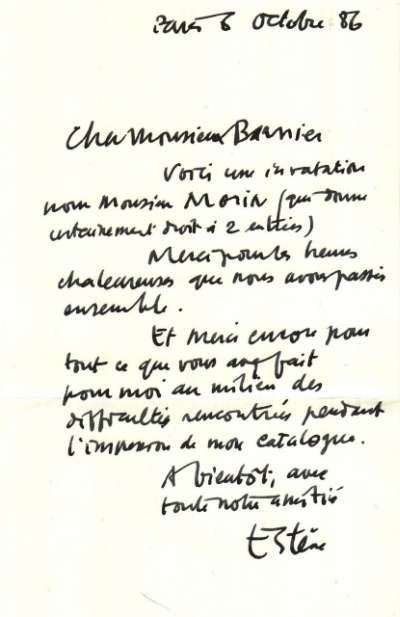 Paris 6 Octobre 86
Cher Monsieur Barrier
Voici une invitation
pour Monsieur Morin (qui donne
certainement droit à 2 entrées)
Merci pour les heures
chaleureuses que nous avons passées
ensemble.
Et merci encore pour
tout ce que vous avez fait
pour moi au milieu des
difficultés rencontrées pendant
l'impression de mon catalogue.
A bientôt, avec
toute notre amitié
Estève